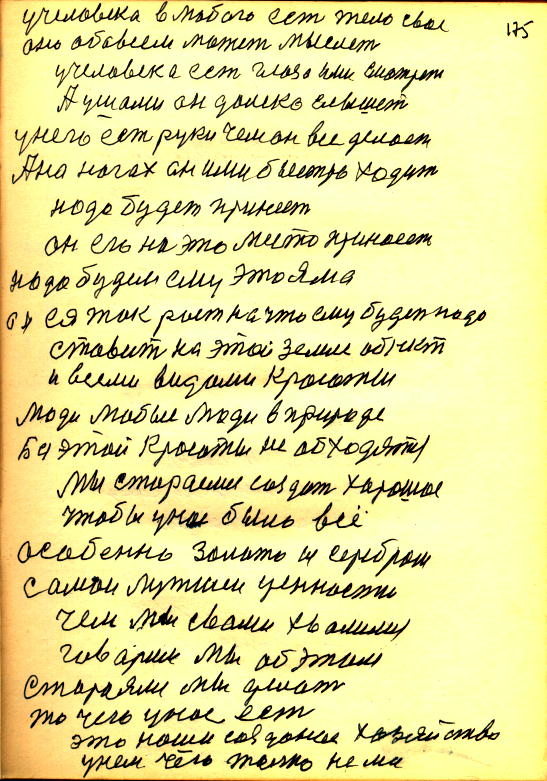 175
учеловека влюбого ест тело свое
оно обовсем может мыслет
учеловека ест глаза ими смотрет
А ушами он далеко слышет
унего ест руки чем он все делает
А на ногах он ими быстро ходит
надо будет принест
он его на это место принесет
надо будет ему это яма
ся так роет на что ему будет надо
ставит на этой земле обект
и всеми видами красоты
люди любые люди в природе
Без этой красоты не обходятся
мы стараемся создат хорошое
чтобы унас было всё
особенно золото и серебром
самои лутшеи ценности
чем мы свами хвалимся
говарим мы об этом
стараяли мы делат
то чего унас ест
это наши созданое хозяйство
унем чего толко нема